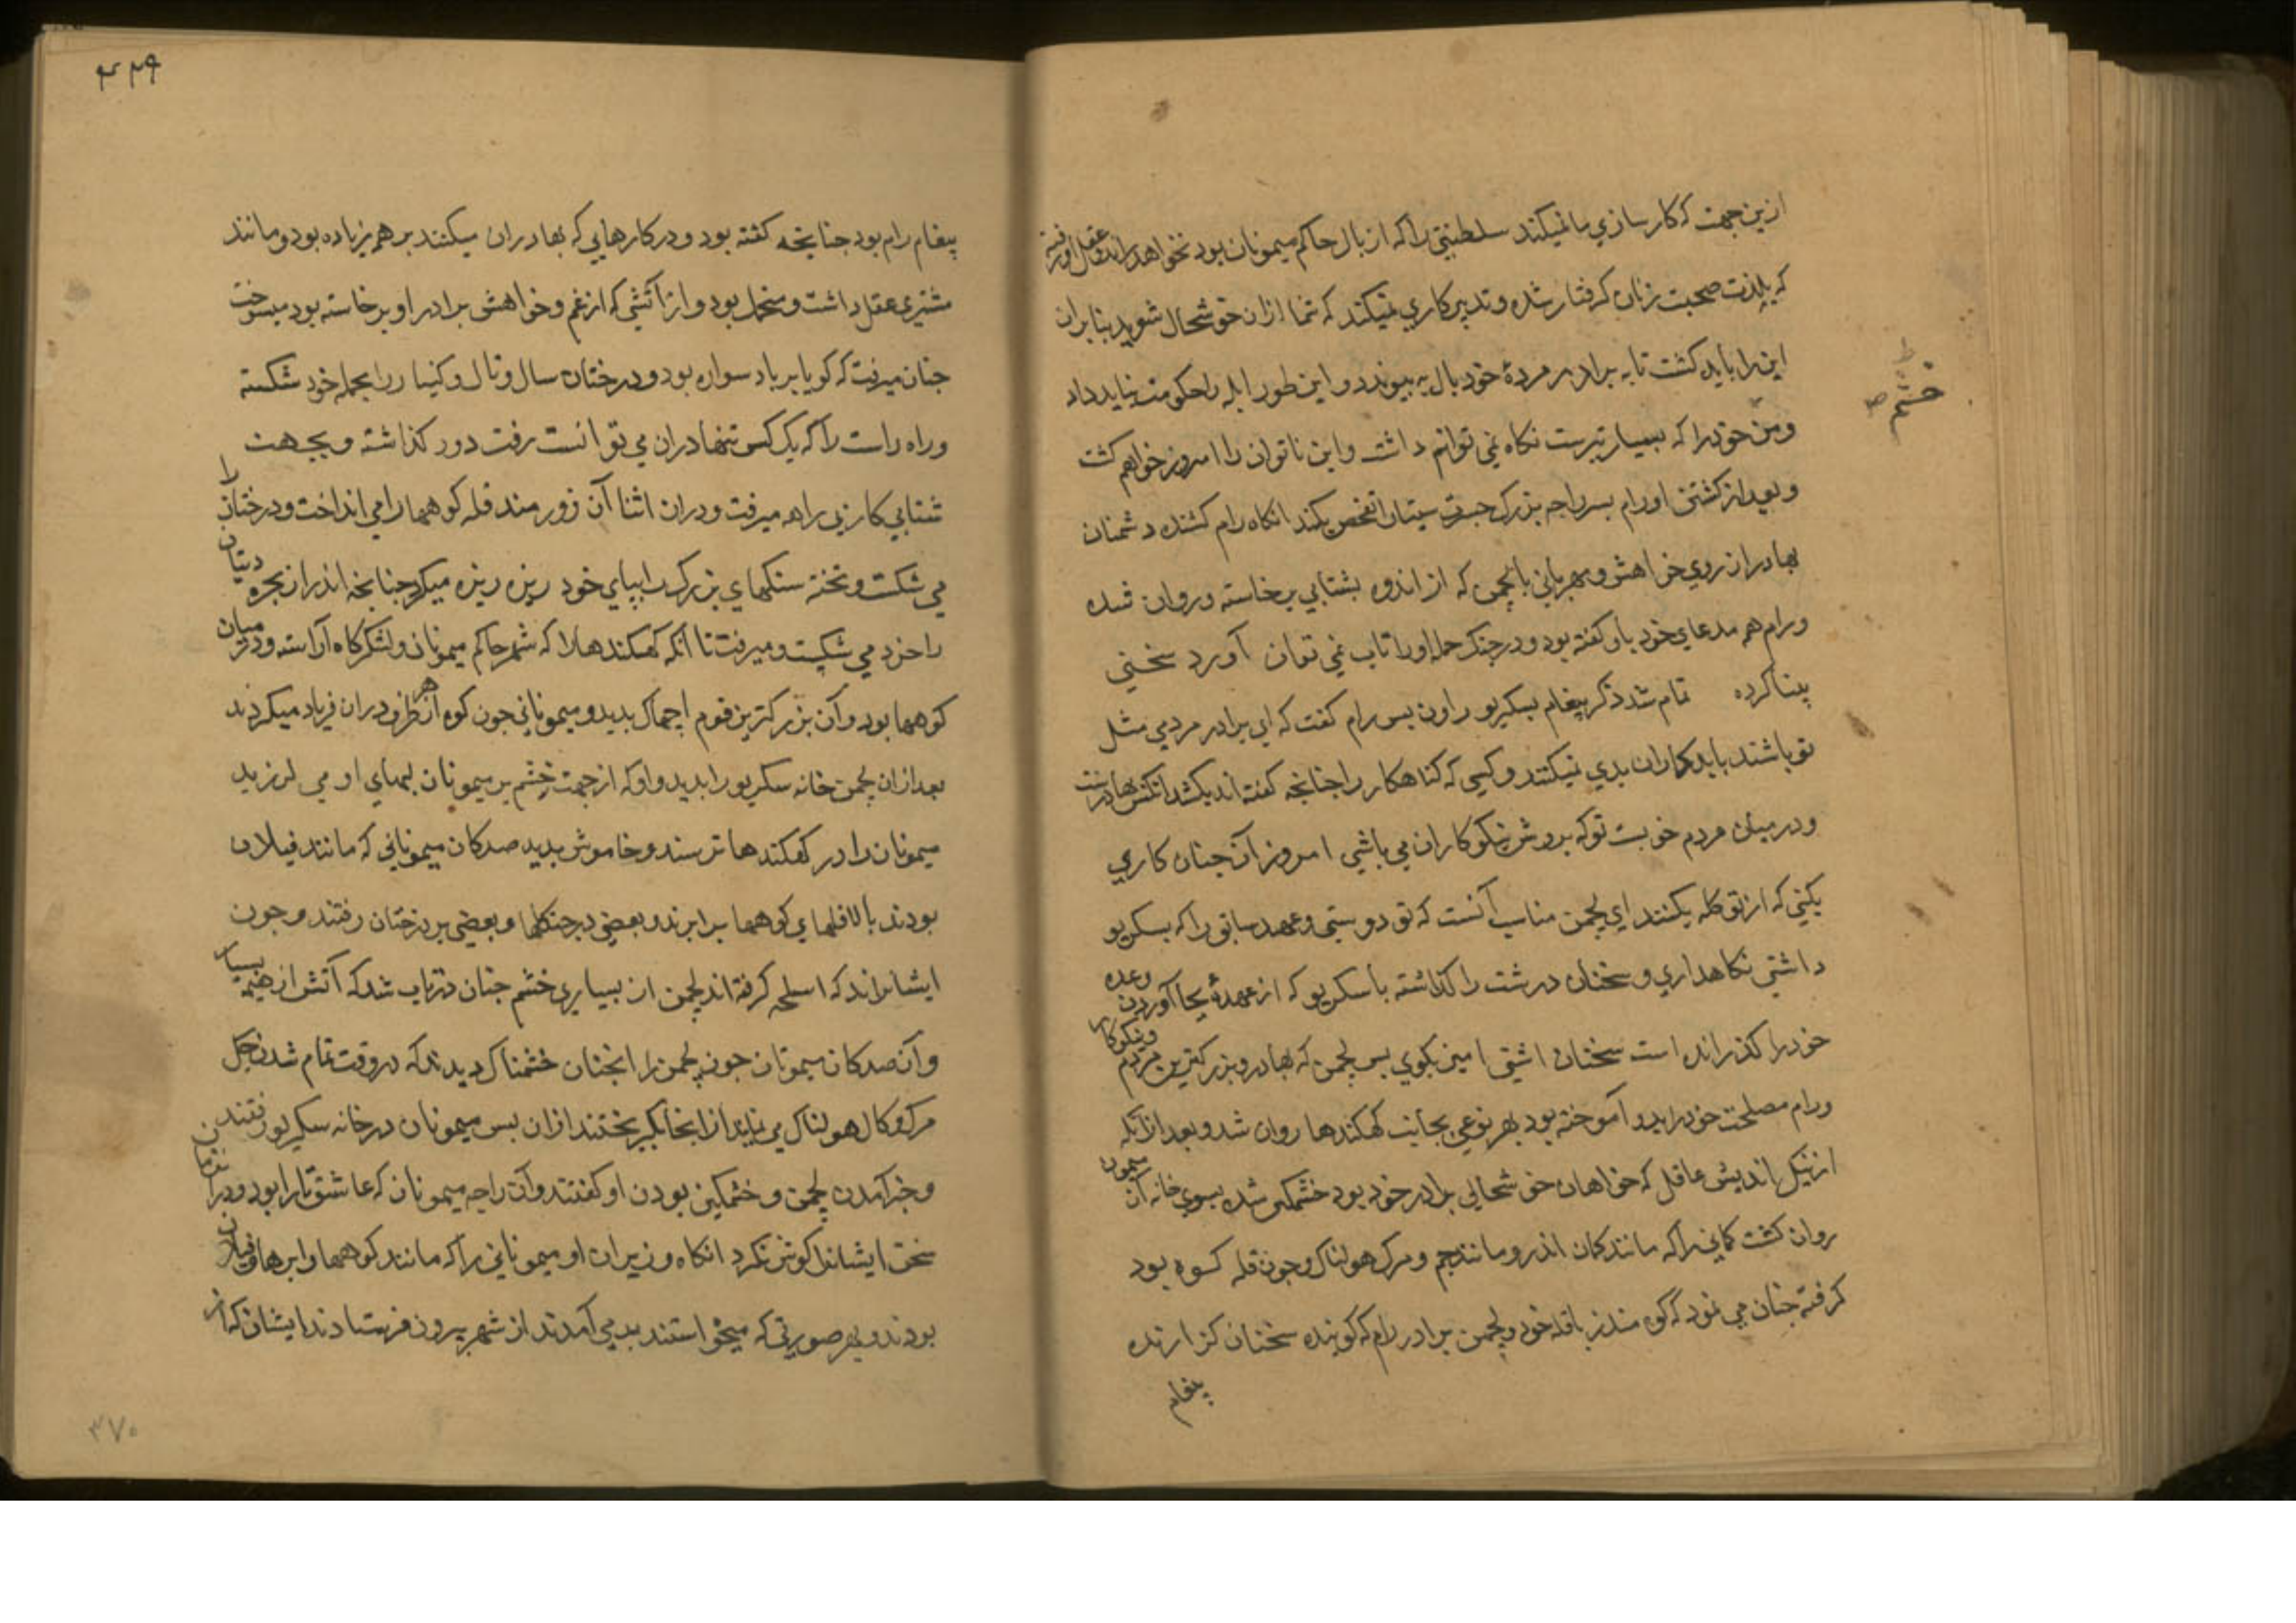 ازین جهت که کارسازی ما نمیکند سلطنتی را که از بال حاکم میمونان بود نخواهد راند و عقل او رفته
که بلذت صحبت زنان گرفتار شده و تدبیر کاری نمیکند که شما ازان خوشحال شوید بنابران
این را باید کشت تا به برادر مردهٔ خود بال به پیوندد و این طور ابله را حکومت نباید داد
خشم
و من خود را که بسیار تیز ست نگاه نمی توانم داشت و این ناتوان را امروز خواهم کشت
و بعد از کشتن او رام پسر راجه بزرگ سیتا را تفحص بکند آنگاه رام کشنده دشمنان
بهادر از روی خواهش و مهربانی با لچمن که از اندوه بشتابی برخاسته و روان شده
و رام هم مدعای خود باو گفته بود و در جنگ حمله او را تاب نمی توان آورد سخنی
پیدا کرده تمام شد ذکر پیغام بسکریو راون پس رام گفت که ای برادر مردمی مثل
تو باشند بابدکاران بدی نمیکنند و کسی که گناهکار را چنانچه گفته اند بکشد آنکس بهادرست
و در میان مردم خوبست تو که بروش نیکوکاران می باشی امروز آن چنان کاری
بکنی که از تو گله بکنند ای لچمن مناسب آنست که تو دوستی و عهد سابق را که بسکریو
داشتی نگاهداری و سخنان درشت را گذاشته با سکریو که از عهدهٔ بجا آوردن وعده
خود را گذرانده است سخنان آشتی آمیز بگوی پس لچمن که بهادر و بزرگترین مردم و نیکوکار
و رام مصلحت خود را بدو آموخته بود بهر نوعی بجانب کهکندها روان شد و بعد ازآنکه
از نیک اندیشی عاقل که خواهان خوشحالی برادر خود بود خشمگین شده بسوی خانه آن میمون
روان گشت کمانی را که مانند کمان اندر و مانند جم و مرگ هولناک و چون قله کوه بود
گرفته چنان می نمود که کوه مندر با قله خود و لچمن برادر رام که گوینده سخنان گزارنده
پیغام
۴۲۹
پیغام رام بود چنانچه گفته بود و در کارهایی که بهادران میکنند بر هم زیاده بود و مانند
مشتری عقل داشت و متحمل بود و از آتشی که از غم و خواهش برادر او برخاسته بود میسوخت
چنان میرفت که گویا بر باد سواره بود و درختان سال و تال و کنیار را بحمله خود شکسته
و راه راست را که یک کس تنها دران می توانست رفت دور گذاشته و بجهت
شتابی کار بی راهه میرفت و دران اثنا آن زورمند قله کوهها را می انداخت و درختان را
می شکست و تخته سنگهای بزرگ را بپای خود ریزه ریزه میکرد چنانچه اندر از بجره دیتان
را خرد می شکست و میرفت تا آنکه کهکندها را که شهر حاکم میمونان و لشکرگاه آراسته و در میان
کوهها بود و آن بزرگترین قوم اچماک بدید و میمونانی چون کوه از هر طرف دران فریاد میکردند
بعد ازان لچمن خانه سکریو را بدید و او که از جهت خشم بر میمونان لبهای او می لرزید
میمونان را در کهکندها ترسنده و خاموش بدید صدگان میمونانی که مانند فیلان
بودند بالا قلهای کوهها برآیند و بعضی در جنگلها و بعضی بر درختان رفتند و چون
ایشانراند که اسلحه گرفته اند لچمن از بسیاری خشم چنان درتاب شد که آتش از هیمه بسیار
و آن صدگان میمونان چون لچمن را آنچنان خشمناک دیدند که در وقت تمام شدن جگ
مرگ و کال هولناک می نماید ازانجا بگریختند ازان پس میمونان در خانه سکریو رفتند
و خبر آمدن لچمن و خشمگین بودن او گفتند و آن راجه میمونان که عاشق تارا بود و دران زمان
سخن ایشانرا گوش نکرد آنگاه وزیران او میمونانی را که مانند کوهها و ابرها و فیلان
بودند و بهر صورتی که میخواستند بدر می آمدند از شهر بیرون فرستادند ایشان که از
۳۷۰